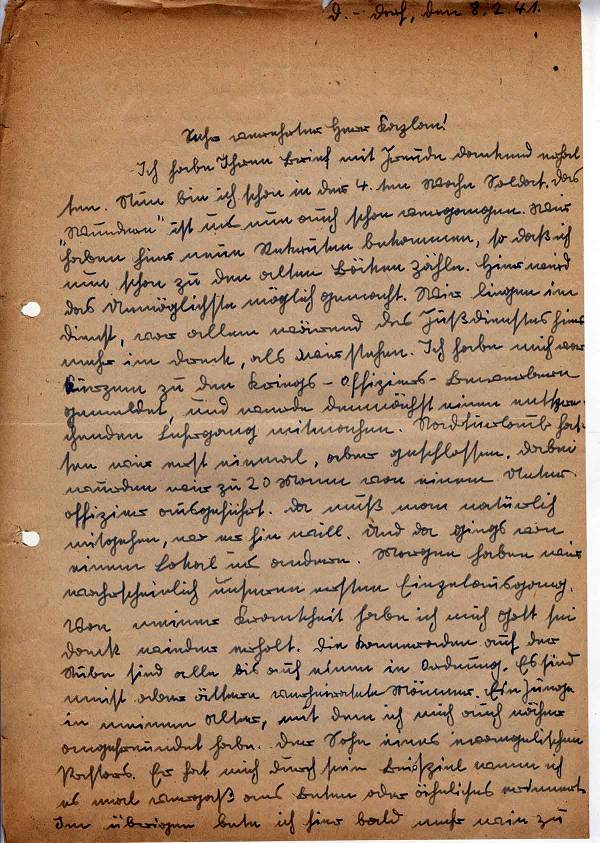 D.-dorf, den 8.2.41.
Sehr verehrter Herr Kaplan!
Ich habe Ihren Brief mit Freude dankend erhal-
ten. Nun bin ich schon in der 4.ten Woche Soldat. Das
"Wundern" ist uns nun auch schon vergangen. Wir
haben hier neue Rekruten bekommen, so daß ich
nun schon zu den alten zähle. Hier wird
das Unmöglichste möglich gemacht. Wir liegen im
dienst, vor allem wärend des Fußdienstes hier
mehr im dreck, als wir stehen. Ich habe mich vor
kurzem zu den Kriegs-Offiziers-Bewerbern
gemeldet, und werde demnächst einen entspre-
chenden Lehrgang mitmachen. Stadturlaub hat-
ten wir erst einmal, aber geschlossen. dabei
wurden wir zu 20 Mann von einem Unter-
offizier ausgeführt. da muß man natürlich
mitgehen, wo er hin will. Und da gings von
einem Lokal ins andere. Morgen haben wir
wahrscheinlich unseren ersten Einzelausgang.
Von meiner Krankheit habe ich mich Gott sei
dank wieder erholt. die Kameraden auf der
Stube sind alle bis auf einen in Ordnung. Es sind
meist aber ältere verheiratete Männer. Ein Junge
in meinem Alter, mit dem ich mich auch näher
angefreundet habe. der Sohn eines evangelischen
Pastors. Er hat mich durch sein Beispiel wenn ich
es mal vergaß ans Beten oder ähnliches erinnert.
Im übrigen bete ich hier bald mehr wie zu